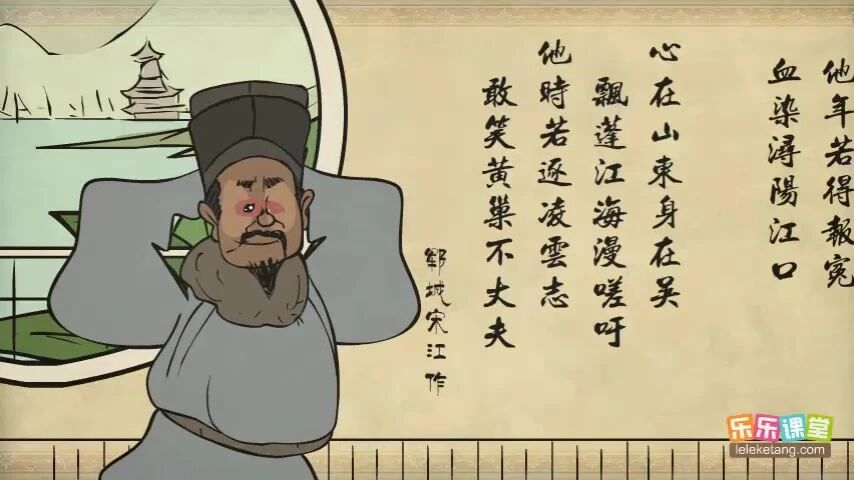 他年若得報冤
血染潯陽江口
心在山東身在吴
飄蓬江海漫嗟吁
他時若逐凌雲志
敢笑黄巢不丈夫
郓城宋江作
乐乐课堂
leleketang.com